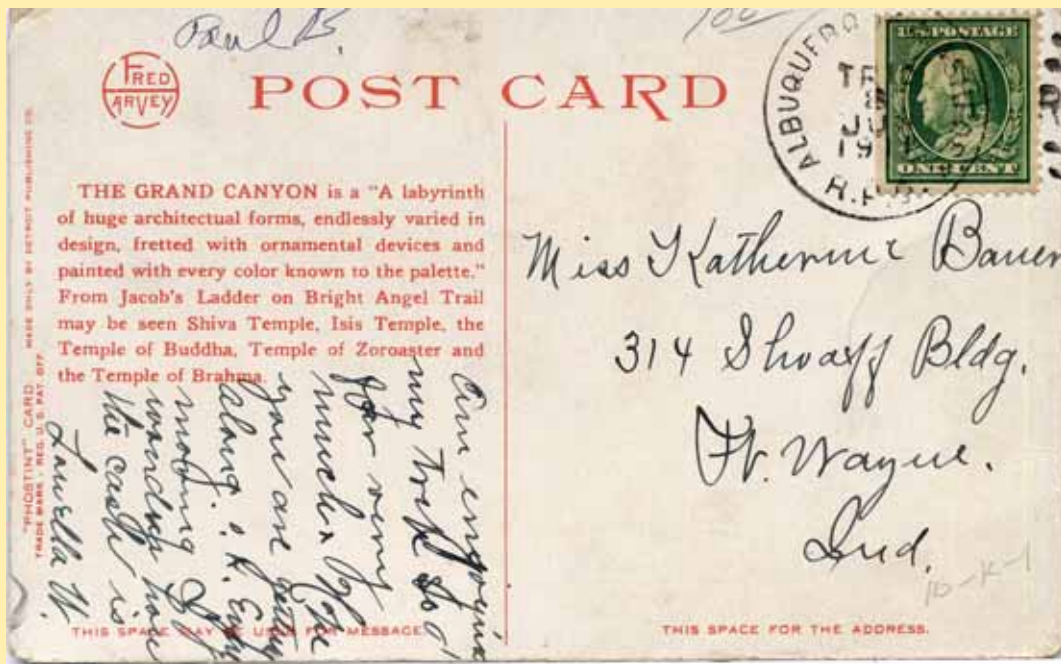 Paul B.
100
FRED
HARVEY
POST CARD
ALBUQUERQ
TR
JU
19
R.P.O.
U.S. POSTAGE
ONE CENT
MADE ONLY BY DETROIT PUBLISHING CO.
"PHOSTINT" CARD
TRADE MARK - REG. U.S. PAT. OFF.
THE GRAND CANYON is a "A labyrinth
of huge architectual forms, endlessly varied in
design, fretted with ornamental devices and
painted with every color known to the palette."
From Jacob's Ladder on Bright Angel Trail
may be seen Shiva Temple, Isis Temple, the
Temple of Buddha, Temple of Zoroaster and
the Temple of Brahma.
Am enjoying
my trip so
far very
much. Hope
you are getting
along O.K. Every
morning I
wonder how
the cash is
Louella W.
THIS SPACE MAY BE USED FOR MESSAGE.
Miss Katherine Bauer
314 Shoaff Bldg.
Ft. Wayne.
Ind.
10-K-1
THIS SPACE FOR THE ADDRESS.